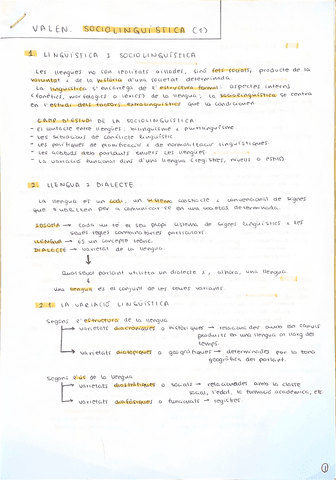 VALEN. SOCIOLINGÜÍSTICA (1)
1. LINGÜÍSTICA I SOCIOLINGÜÍSTICA
Les llengües no són realitats aïllades, sinó fets socials, producte de la
voluntat i de la història d'una societat determinada.
La lingüística s'encarrega de l'estructura formal: aspectes interns
(fonètics, morfològics o lèxics) de la llengua; la sociolingüística se centra
en l'estudi dels factors extralingüístics que la condicionen.
CAMP D'ESTUDI DE LA SOCIOLINGÜÍSTICA:
- El contacte entre llengües: bilingüisme i plurilingüisme
- Les situacions de conflicte lingüístic.
- Les polítiques de planificació i de normalització lingüístiques.
- Les actituds dels parlants envers les llengües.
- La variació funcional dins d'una llengua (registres, nivells o estils).
2. LLENGUA I DIALECTE
La llengua és un codi, un sistema abstracte i convencional de signes
que s'utilitzen per a comunicar-se en una societat determinada.
IDIOMA → cada un té el seu propi sistema de signes lingüístics i les
seues regles combinatòries particulars.
LLENGUA → És un concepte teòric.
DIALECTE → varietat de la llengua.
Qualsevol parlant utilitza un dialecte i, alhora, una llengua.
Una llengua és el conjunt de les seues variants.
2.1. LA VARIACIÓ LINGÜÍSTICA
Segons l'estructura de la llengua
→ varietats diacròniques o històriques → relacionades amb els canvis
produïts en una llengua al llarg del
temps.
→ varietats diatòpiques o geogràfiques → determinades per la zona
geogràfica del parlant.
Segons l'ús de la llengua
→ varietats diastràtiques o socials → relacionades amb la classe
social, l'edat, la formació acadèmica, etc.
→ varietats diafàsiques o funcionals → registres.
1